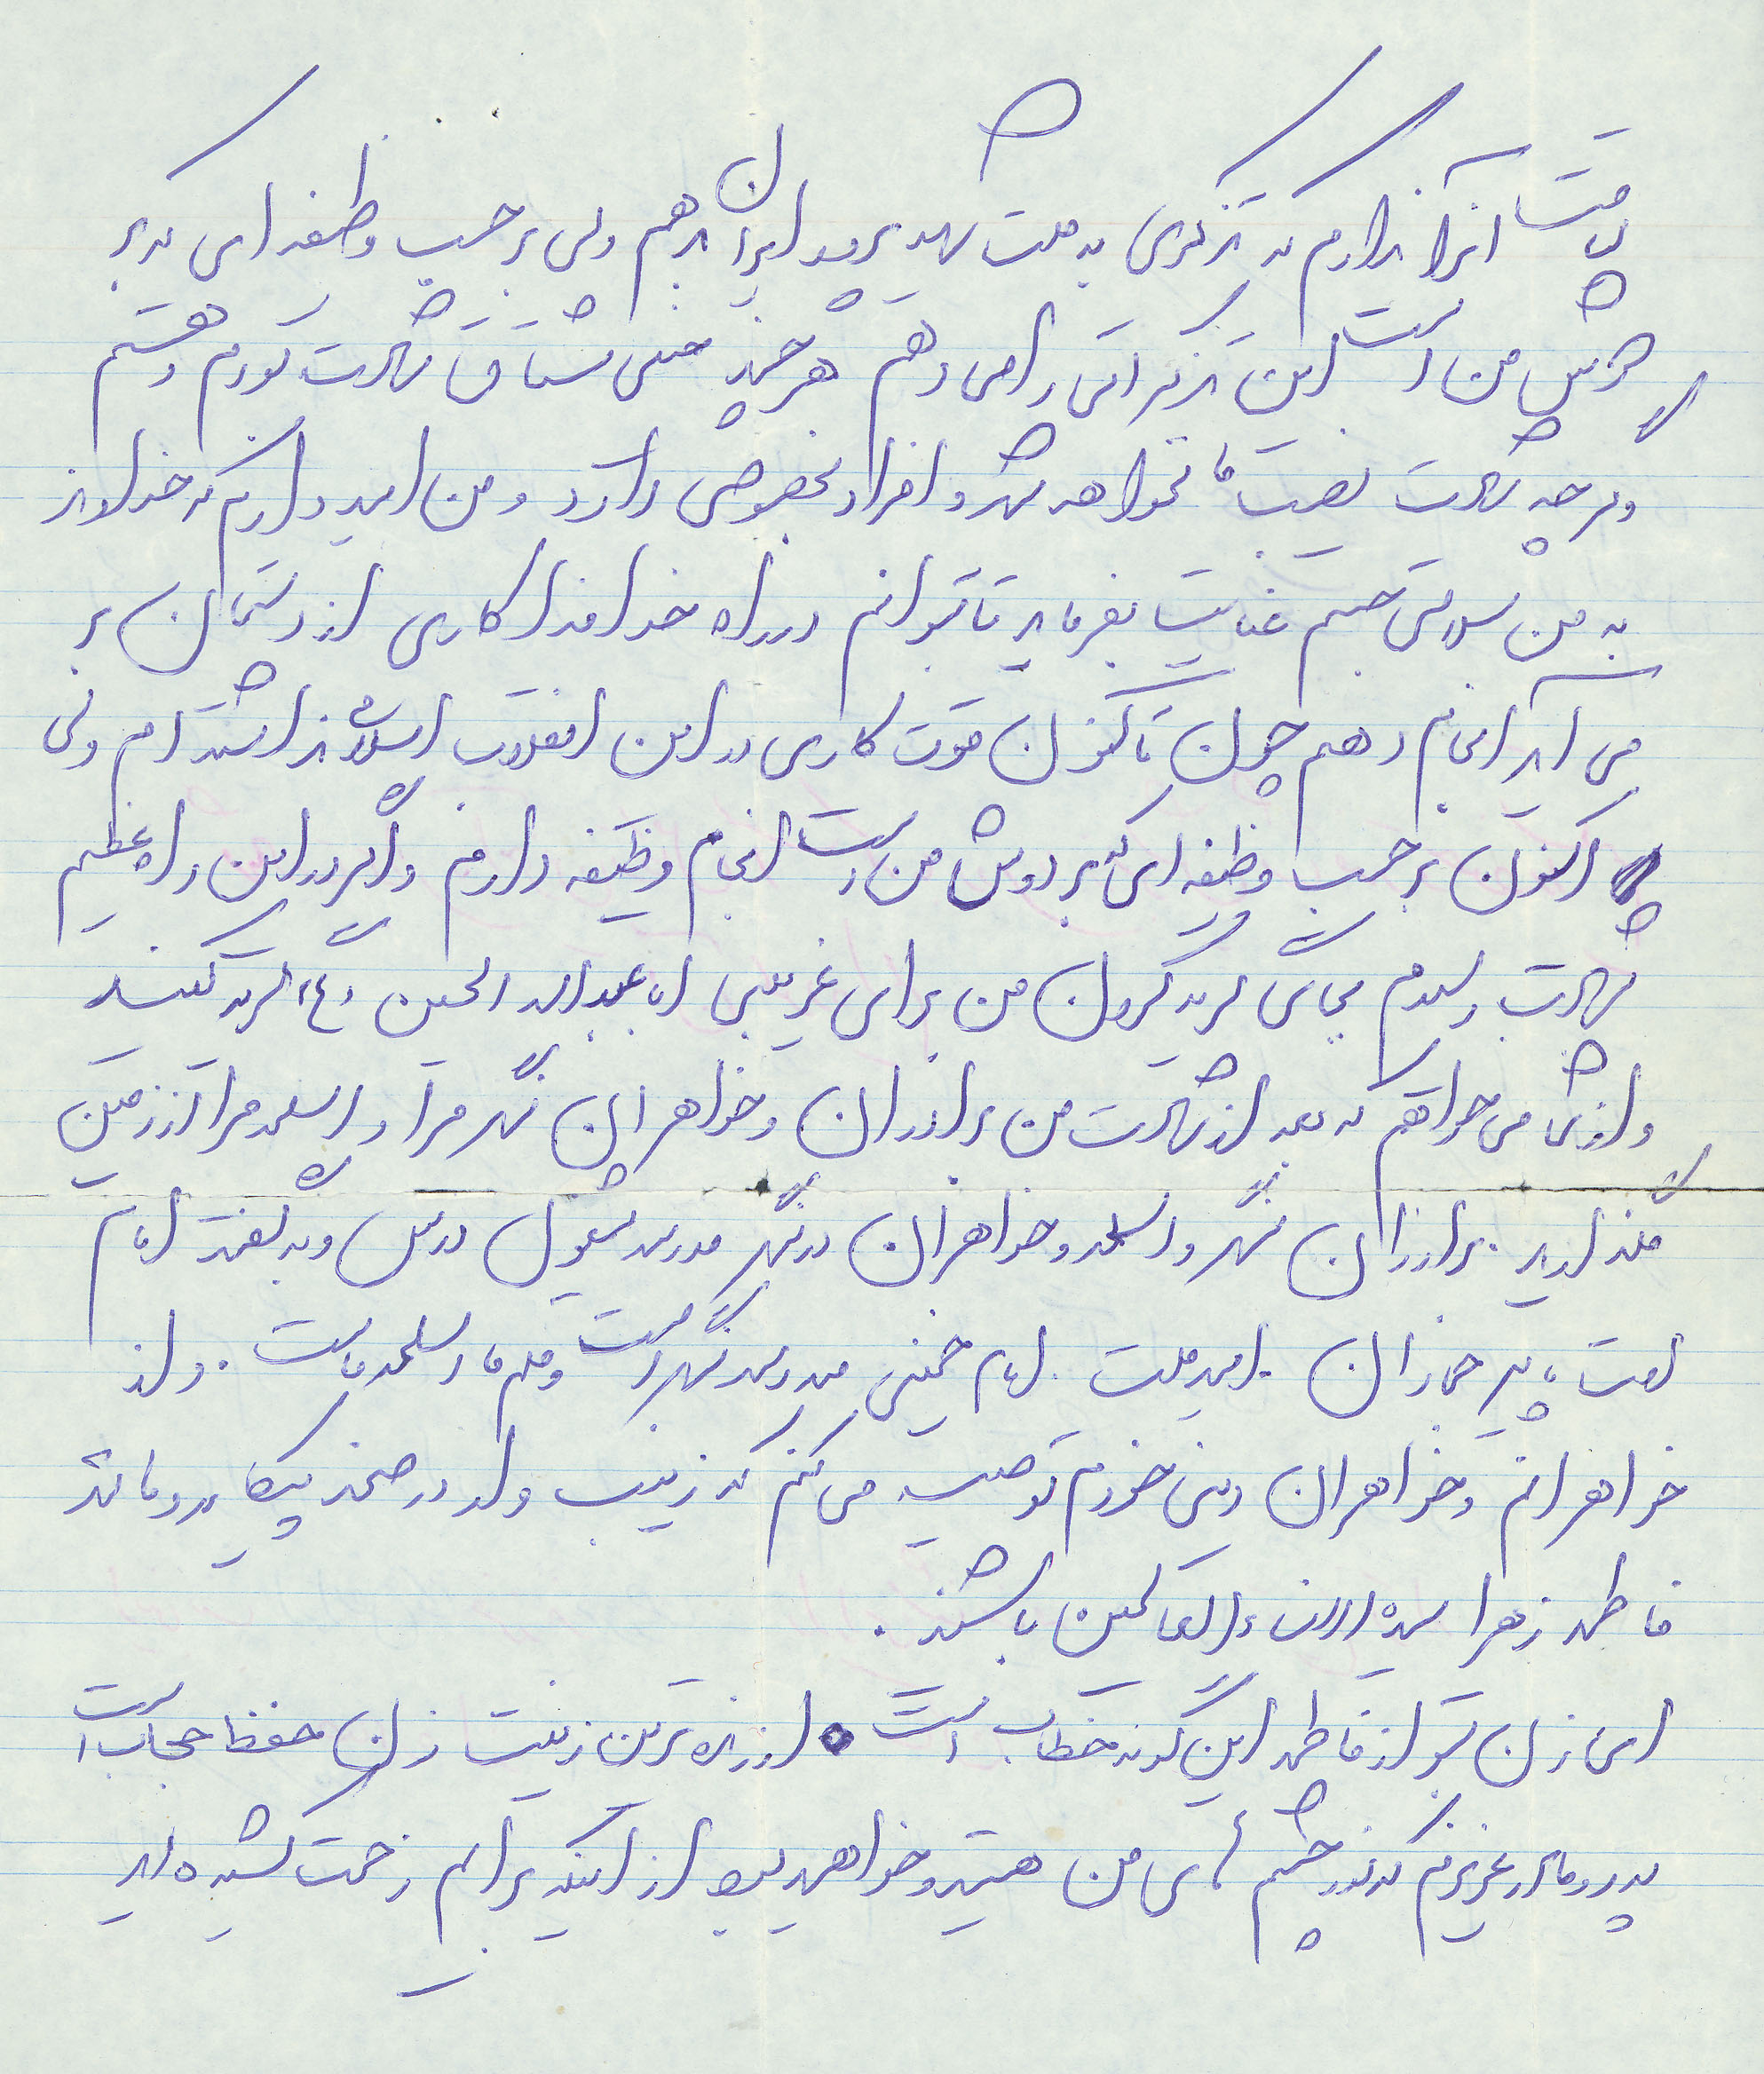 لیاقت آنرا ندارم که تذکری به ملت شهید پرور ایران بدهم ولی بر حسب وظیفه ای که بر
دوش من است این تذکراتی را می دهم هر چند خیلی مشتاق شهادت بودم و هستم
و درجه شهادت نصیب ما نخواهد شد و افراد بخصوصی دارد و من امید دارم که خداوند
به من سلامتی جسم عنایت بفرماید تا بتوانم در راه خدا فداکاری از دستمان بر
می آید انجام دهم چون تاکنون قوت کاری در این انقلاب اسلامی نداشته ام ولی
اکنون بر حسب وظیفه ای که بر دوش من است انجام وظیفه دارم و اگر در این راه عظیم
شهادت رسیدم بجای گریه کردن من برای غریبی ابا عبدالله الحسین (ع) گریه کنید
و از شما می خواهم که بعد از شهادت من برادران و خواهران سنگر مرا و اسلحه مرا در زمین
نگذارید . برادران سنگر و اسلحه و خواهران در سنگر مدرسه مشغول درس و به گفته امام
امت ، پیر جماران . امید ملت . امام خمینی مدرسه سنگر است و قلم ما اسلحه ماست . و از
خواهرانم و خواهران دینی خودم توصیه می کنم که زینب وار در صحنه پیکار بوده مانند
فاطمه زهرا سیده النساء العالمین باشند .
ای زن بتو از فاطمه این گونه خطاب است ارزنده ترین زینت زن حفظ حجاب است
پدر و مادر عزیزم که نور چشم های من هستید و خواهید بود از اینکه برایم زحمت کشیده اید